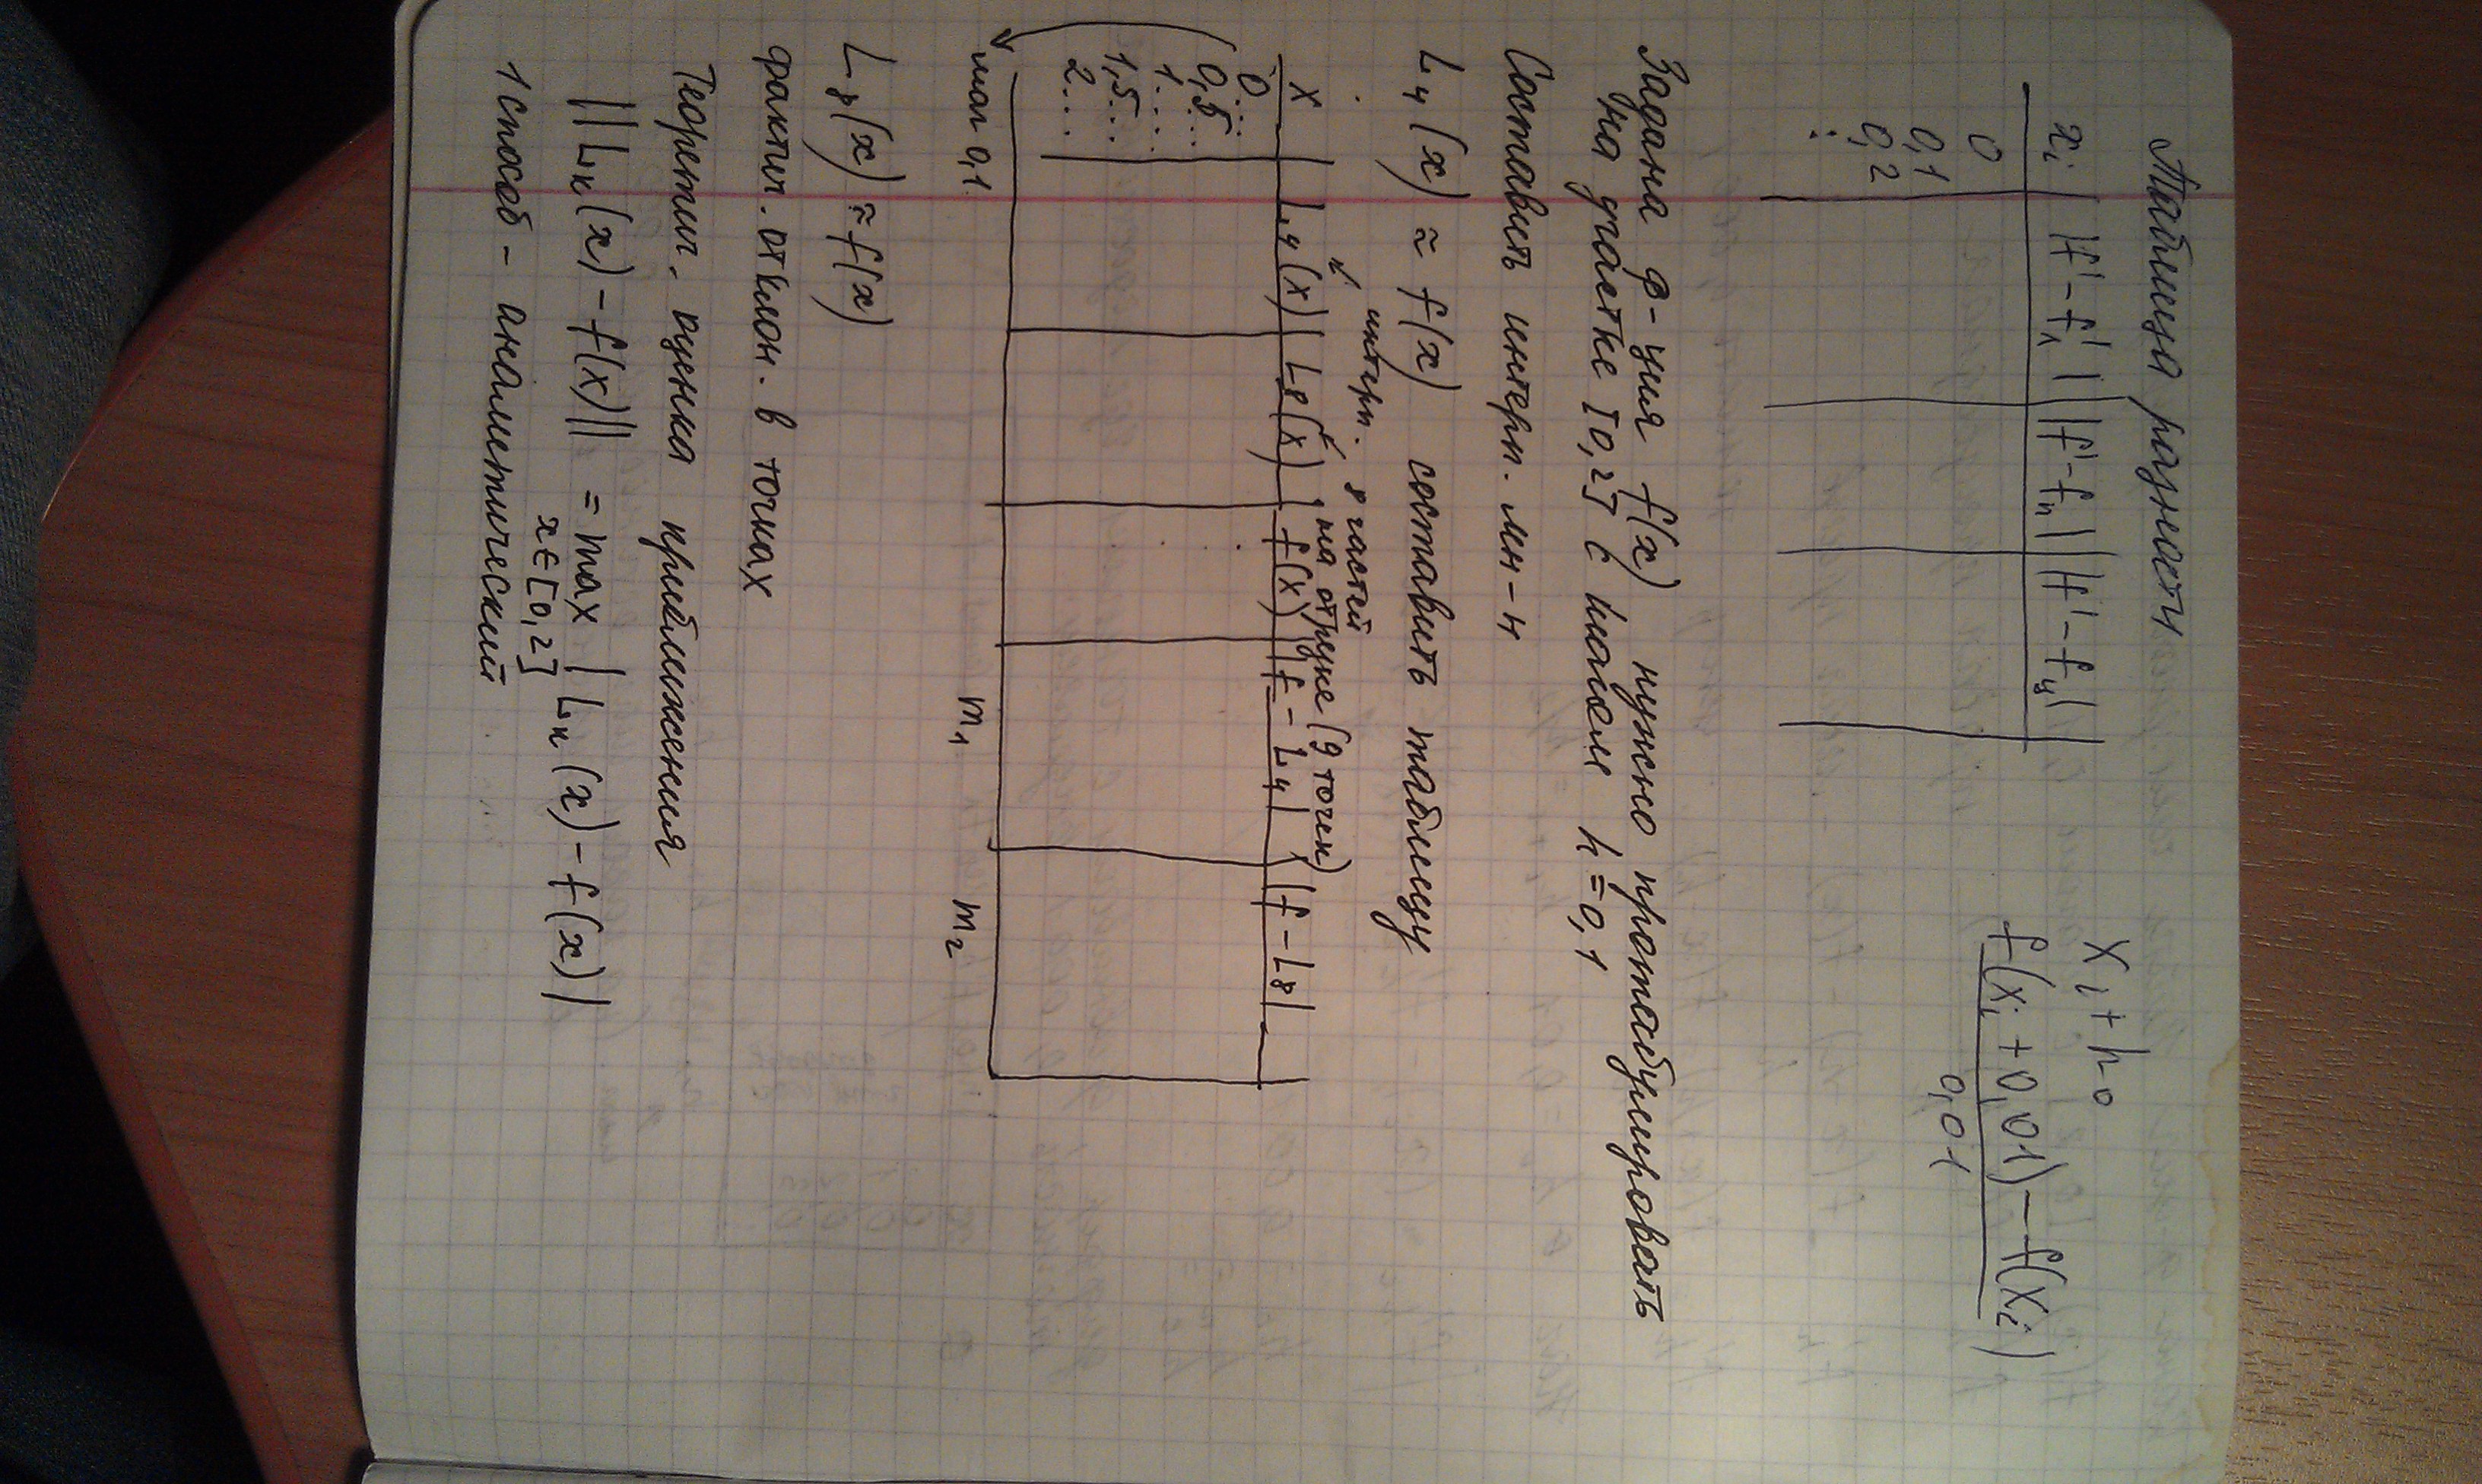 Таблица разности
xᵢ | |f'-f'₁| | |f'-f'ₙ| | |f'-f'ц|
0
0,1
0,2
⋮
xᵢ+h₀
f(xᵢ+0,01)-f(xᵢ)
0,01
Задана ф-ция f(x) нужно протабулировать
на участке [0,2] с шагом h=0,1
Составить интерп. мн-н
L₄(x) ≈ f(x) составить таблицу
интерп. 8 частей
на отрезке (9 точек)
x | L₄(x) | L₈(x) | f(x) | |f-L₄| | |f-L₈|
0...
0,5...
1...
1,5...
2...
шаг 0,1 m₁ m₂
L₈(x) ≈ f(x)
фактич. отклон. в точках
Теоретич. оценка приближения
||Lₙ(x)-f(x)|| = max |Lₙ(x)-f(x)|
x∈[0,2]
1 способ - аналитический